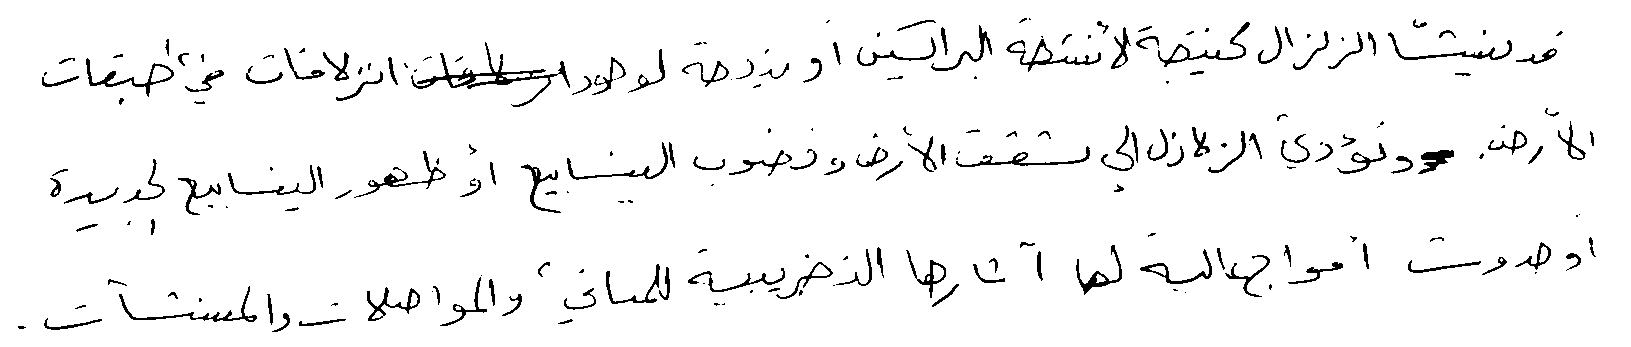 قد ينشأ الزلزال كنتيجة لأنشطة البراكين أو نتيجة لوجود انزلاقات في طبقات
الأرض. وتؤدي الزلازل إلى تشقق الأرض ونضوب الينابيع أو ظهور الينابيع الجديدة
أو حدوث أمواج عالية لها آثارها التخريبية للمباني، والمواصلات والمنشآت.